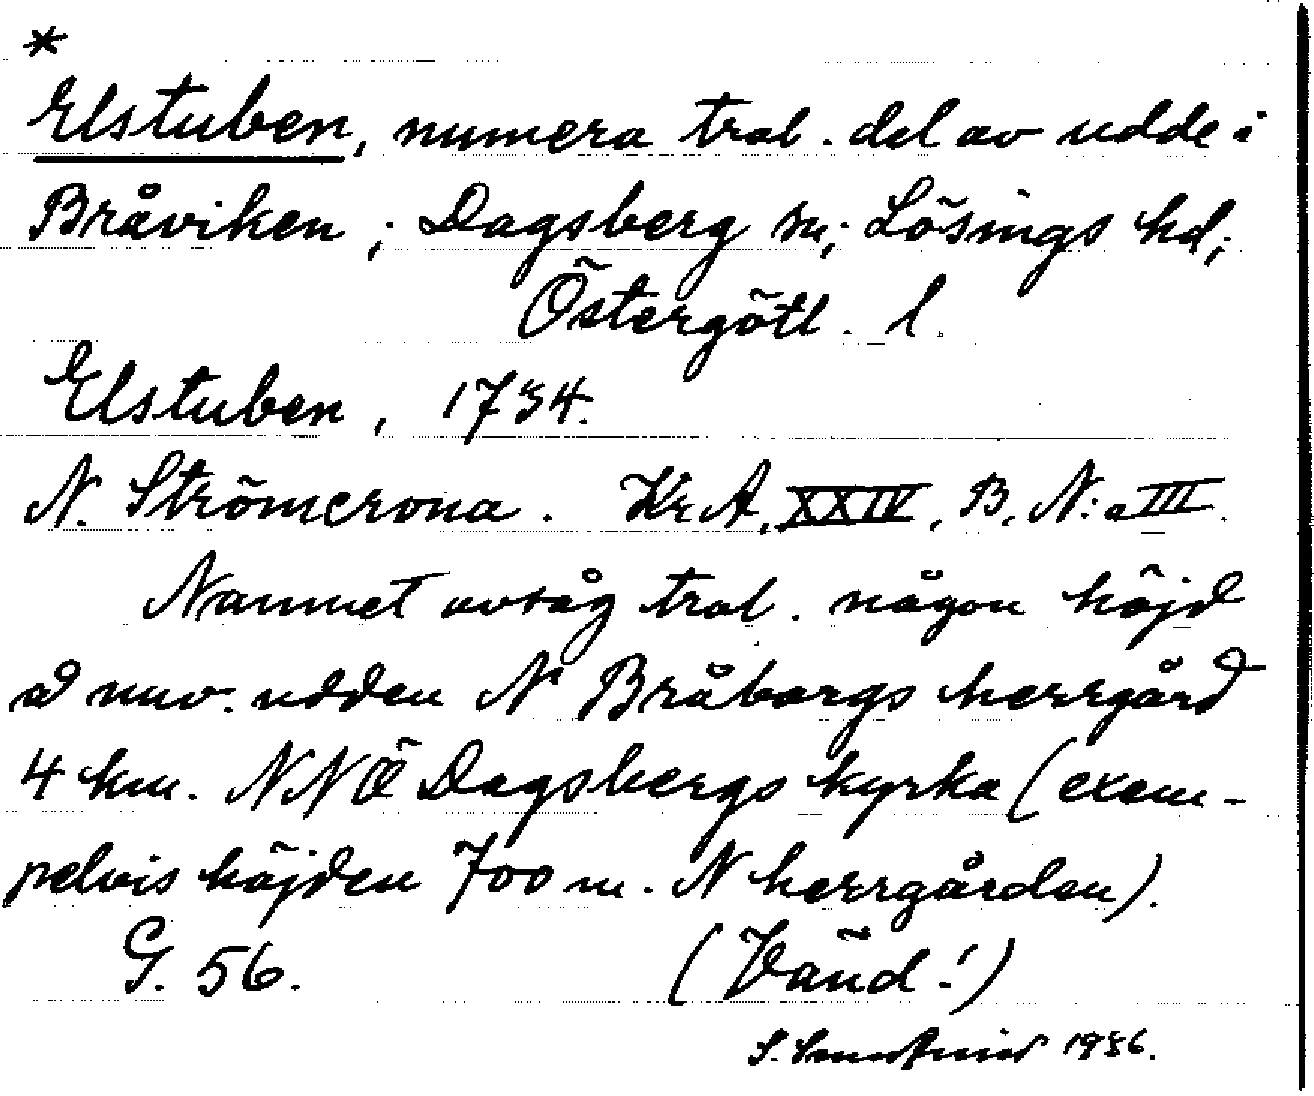 *
Elstuben, numera trol. del av udde i
Bråviken; Dagsberg sn; Lösings hd;
Östergötl. l.
Elstuben, 1734.
N. Strömcrona. Kr. A. XXIV, B. N:o III.
Namnet avsåg trol. någon höjd
å nuv. udden N Bråborgs herrgård
4 km. NNÖ Dagsbergs kyrka (exem-
pelvis höjden 700 m. N herrgården).
G. 56. (Vänd!)
S. 1936.